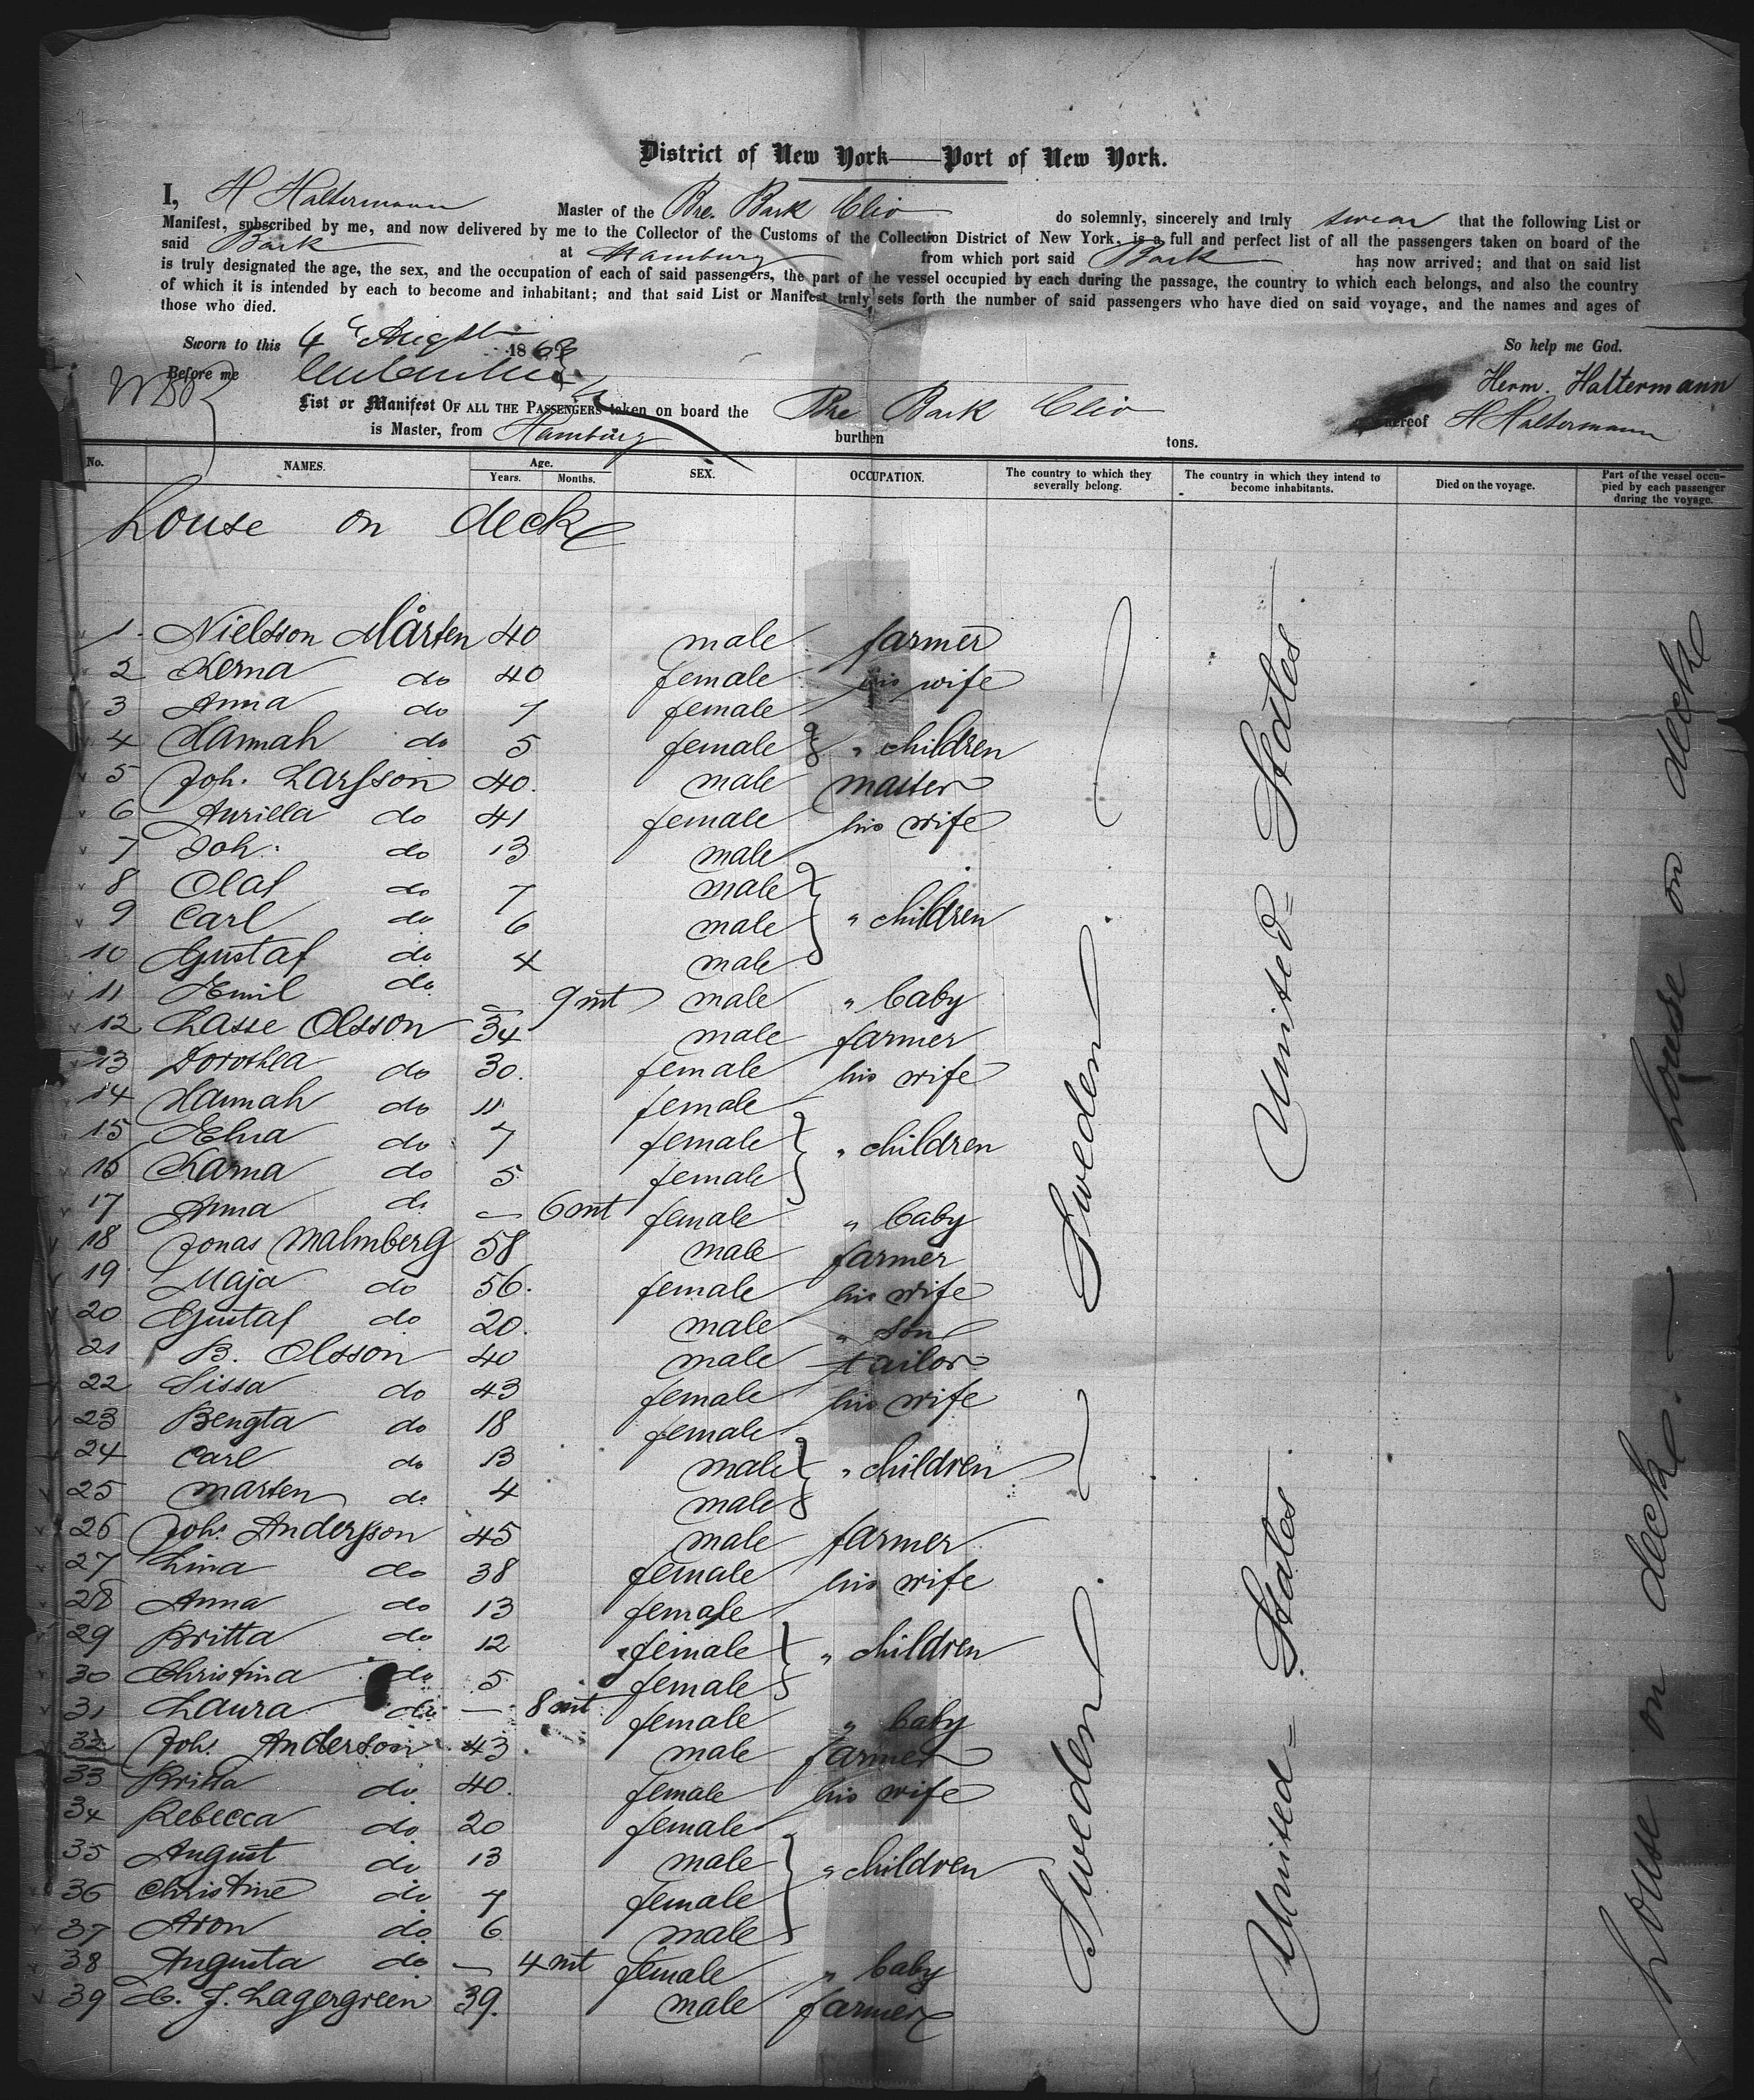 District of New York—Port of New York.
I, H Haltermann Master of the Bre. Bark Clio do solemnly, sincerely and truly swear that the following List or
Manifest, subscribed by me, and now delivered by me to the Collector of the Customs of the Collection District of New York, is a full and perfect list of all the passengers taken on board of the
said Bark at Hamburg from which port said Bark has now arrived; and that on said list
is truly designated the age, the sex, and the occupation of each of said passengers, the part of the vessel occupied by each during the passage, the country to which each belongs, and also the country
of which it is intended by each to become and inhabitant; and that said List or Manifest truly sets forth the number of said passengers who have died on said voyage, and the names and ages of
those who died.
Sworn to this 4 Augst 1868 So help me God.
Before me Herm. Haltermann
List or Manifest OF ALL THE PASSENGERS taken on board the Bre Bark Clio whereof H Haltermann
is Master, from Hamburg burthen tons.
No. NAMES. Age. Years. Months. SEX. OCCUPATION. The country to which they severally belong. The country in which they intend to become inhabitants. Died on the voyage. Part of the vessel occupied by each passenger during the voyage.
house on deck
1. Nielsson Mårten 40 male farmer
2 Kerna do 40 female his wife
3 Anna do 7 female
4 Hannah do 5 female " children
5 Joh. Larsson 40. male master
6 Aurilla do 41 female his wife
7 Joh. do 13 male
8 Olaf do 7 male
9 Carl do 6 male " children
10 Gustaf do 4 male
11 Emil do — 9 mt male " baby
12 Lasse Olsson 34 male farmer
13 Dorothea do 30. female his wife
14 Hannah do 11 female
15 Elna do 7 female " children
16 Karna do 5 female
17 Anna do — 6 mt female " baby
18 Jonas Malmberg 58 male farmer
19 Maja do 56. female his wife
20 Gustaf do 20. male " son
21 B. Olsson 40 male tailor
22 Sissa do 43 female his wife
23 Bengta do 18 female
24 Carl do 13 male " children
25 Marten do 4 male
26 Joh. Andersson 45 male farmer
27 Lina do 38 female his wife
28 Anna do 13 female
29 Britta do 12 female " children
30 Christina do 5 female
31 Laura do — 8 mt female " baby
32 Joh. Anderson 43 male farmer
33 Britta do. 40. female his wife
34 Rebecca do 20 female
35 August do 13 male " children
36 Christine do 7 female
37 Aron do 6 male
38 Augusta do — 4 mt female " baby
39 C. J. Lagergreen 39. male farmer
Sweden
Sweden
United States
United States
house on deck
house on deck